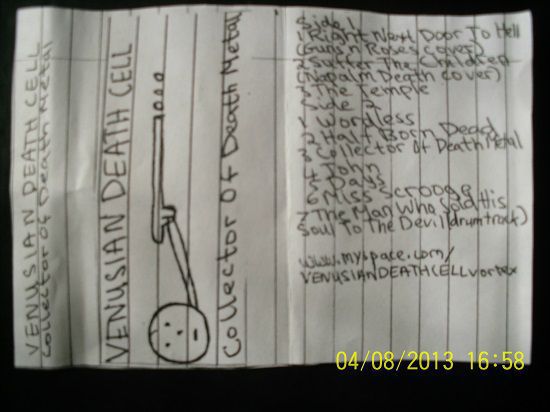 VENUSIAN DEATH CELL
Collector Of Death Metal
VENUSIAN DEATH CELL
Collector Of Death Metal
Side 1
1 Right Next Door To Hell
(Guns n Roses cover)
2 Suffer The Children
(Napalm Death cover)
3 The Temple
Side 2
1 Wordless
2 Half Born Dead
3 Collector Of Death Metal
4 John
5 Days
6 Miss Scrooge
7 The Man Who Sold His
Soul To The Devil (drum track)
www.myspace.com/
VENUSIANDEATHCELLvortex
04/08/2013 16:58